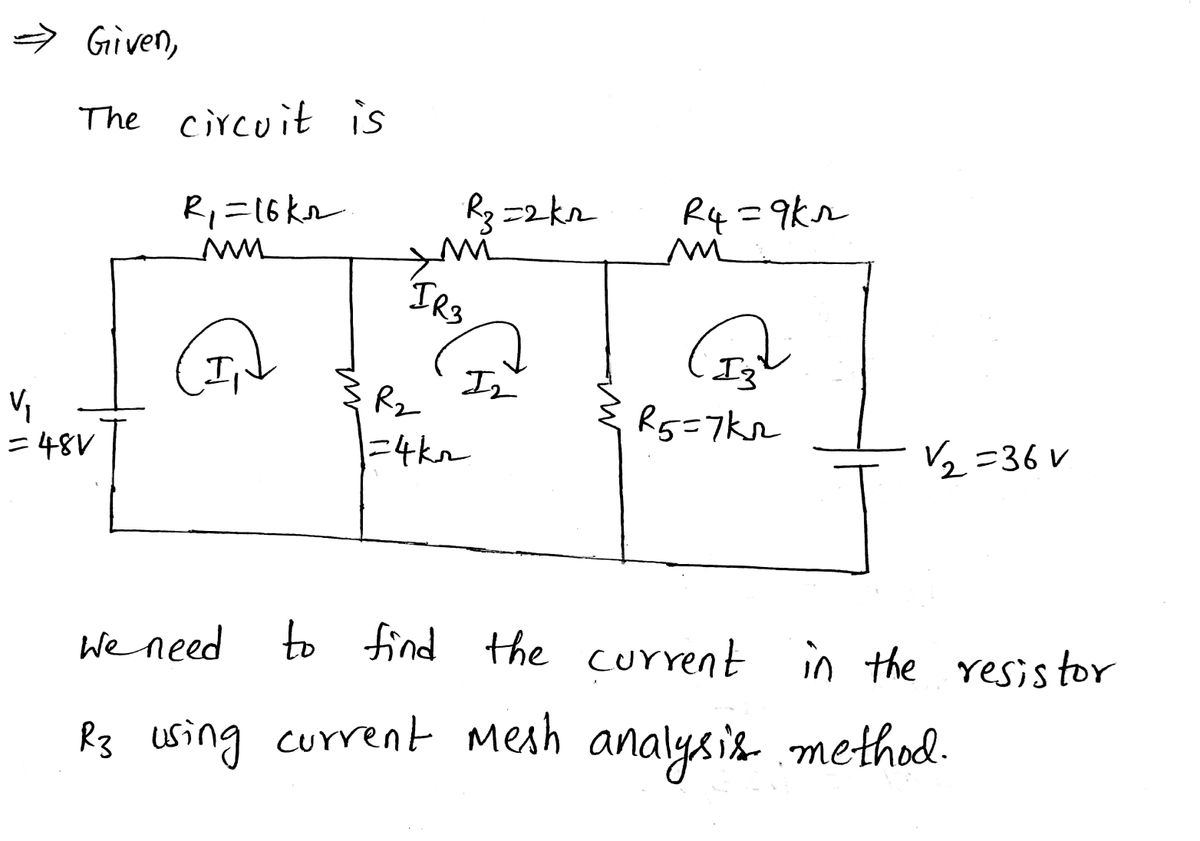 ⇒ Given,
The circuit is
R₁=16kΩ R₃=2kΩ R₄=9kΩ
I_R₃
I₁ I₂ I₃
V₁
=48V
R₂
=4kΩ
R₅=7kΩ
V₂=36 V
We need to find the current in the resistor
R₃ using current Mesh analysis method.